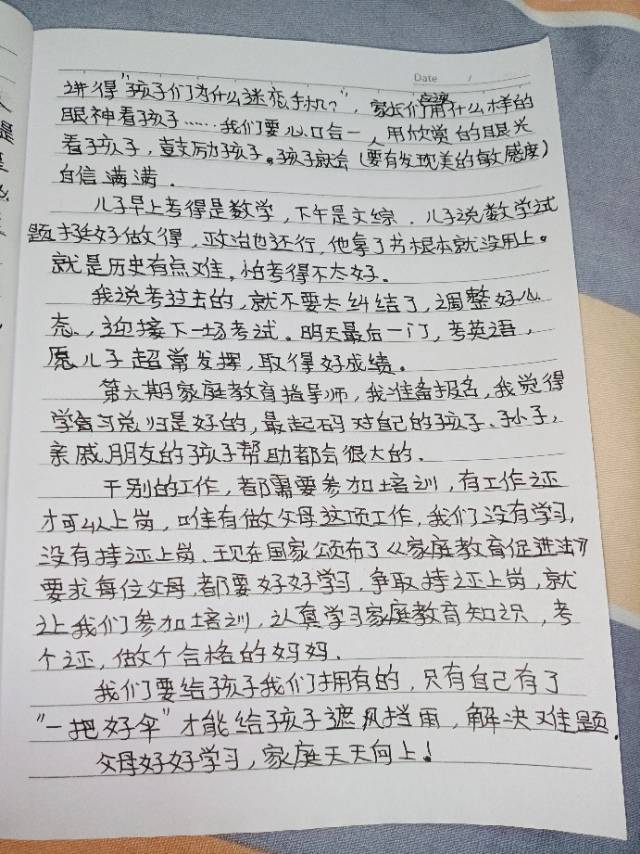 Date /
讲得"孩子们为什么迷恋手机?",家长们用什么样的
应该
眼神看孩子……我们要心口合一,用欣赏的眼光
看孩子,鼓励孩子。孩子就会(要有发现美的敏感度)
自信满满.
儿子早上考得是数学,下午是文综.儿子说数学试
题挺好做得,政治也还行,他拿了书根本就没用上。
就是历史有点难,怕考得不太好.
我说考过去的,就不要太纠结了,调整好心
态,迎接下一场考试.明天最后一门,考英语,
愿儿子超常发挥,取得好成绩.
第六期家庭教育指导师,我准备报名,我觉得
学习总归是好的,最起码对自己的孩子、孙子,
亲戚朋友的孩子帮助都会很大的.
干别的工作,都需要参加培训,有工作证
才可以上岗,唯有做父母这项工作,我们没有学习,
没有持证上岗.现在国家颁布了《家庭教育促进法》
要求每位父母,都要好好学习,争取持证上岗,就
让我们参加培训,认真学习家庭教育知识,考
个证,做个合格的妈妈.
我们要给孩子我们拥有的,只有自己有了
"一把好伞"才能给孩子遮风挡雨,解决难题.
父母好好学习,家庭天天向上!